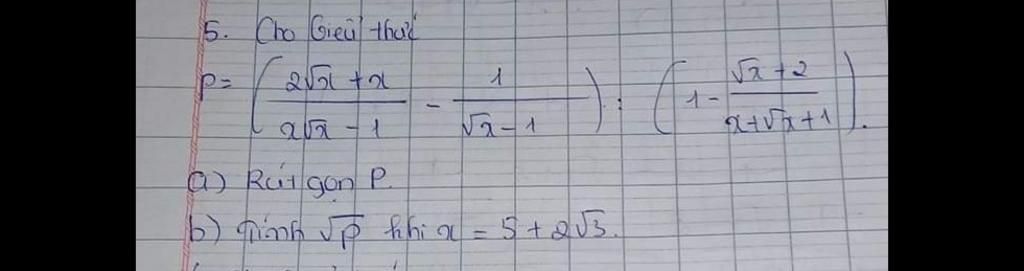 5. Cho biểu thức
P = ( (2√x + x)/(x√x - 1) - 1/(√x - 1) ) : ( 1 - (√x + 2)/(x + √x + 1) ).
a) Rút gọn P.
b) Tính √P khi x = 5 + 2√3.